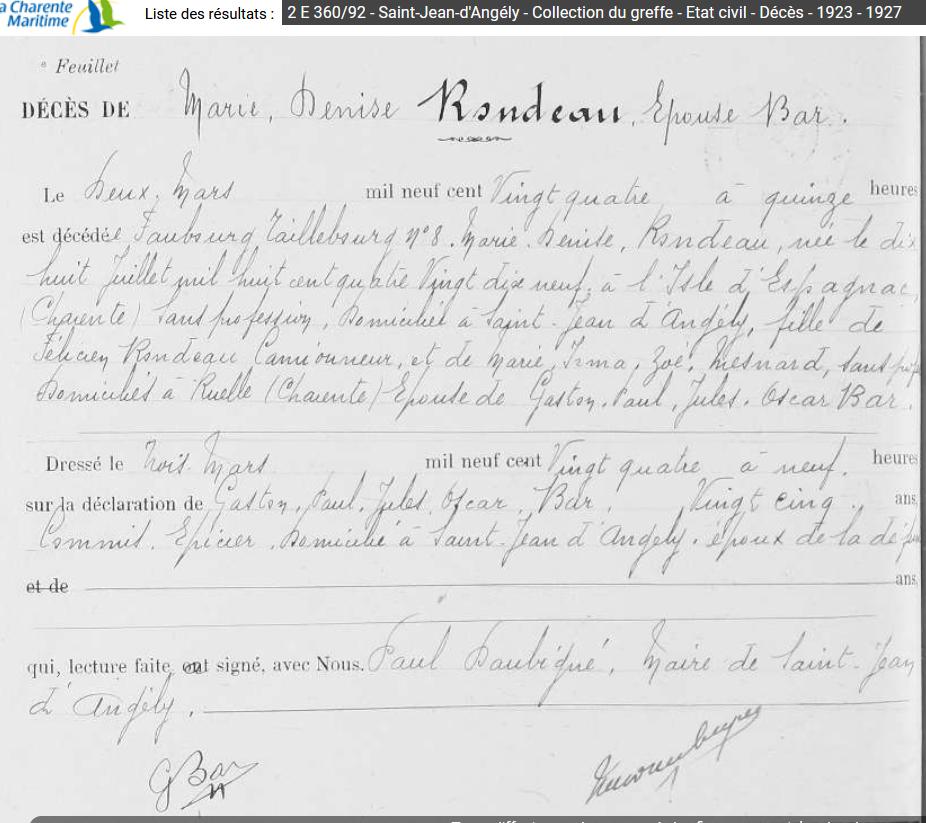 a Charente
Maritime
Liste des résultats : 2 E 360/92 - Saint-Jean-d'Angély - Collection du greffe - Etat civil - Décès - 1923 - 1927
e Feuillet
DÉCÈS DE Marie, Denise Rondeau, Epouse Bar.
Le Deux Mars mil neuf cent Vingt quatre à quinze heures
est décédée Faubourg Taillebourg N° 8. Marie. Denise, Rondeau, née le dix
huit Juillet mil huit cent quatre Vingt dix neuf, à l'Isle d'Espagnac,
(Charente) sans profession, Domiciliée à Saint-Jean d'Angély, fille de
Félicien Rondeau Camionneur, et de Marie, Irma, Zoé, Mesnard, sans prof
Domiciliés à Ruelle (Charente) Epouse de Gaston. Paul, Jules. Oscar Bar.
Dressé le Trois Mars mil neuf cent Vingt quatre à neuf. heures
sur la déclaration de Gaston, Paul, Jules, Oscar, Bar, Vingt cinq ans,
Commis. Epicier, Domicilié à Saint-Jean d'Angély. époux de la
et de ans,
qui, lecture faite, ont signé, avec Nous. Paul Daubigné, Maire de Saint-Jean
d'Angély.
G Bar